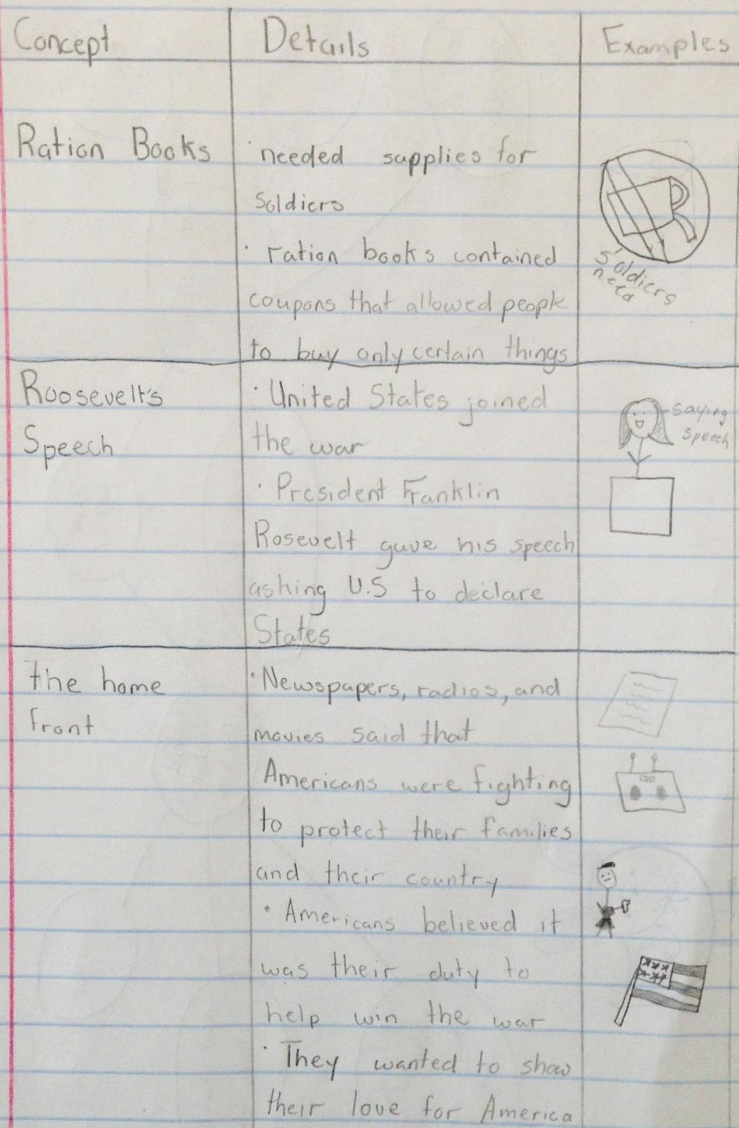 Concept
Details
Examples
Ration Books
· needed supplies for
soldiers
· ration books contained
coupons that allowed people
to buy only certain things
soldiers
need
Roosevelt's
Speech
· United States joined
the war
· President Franklin
Rosevelt gave his speech
asking U.S to declare
States
saying
speech
the home
front
· Newspapers, radios, and
movies said that
Americans were fighting
to protect their families
and their country
· Americans believed it
was their duty to
help win the war
· They wanted to show
their love for America